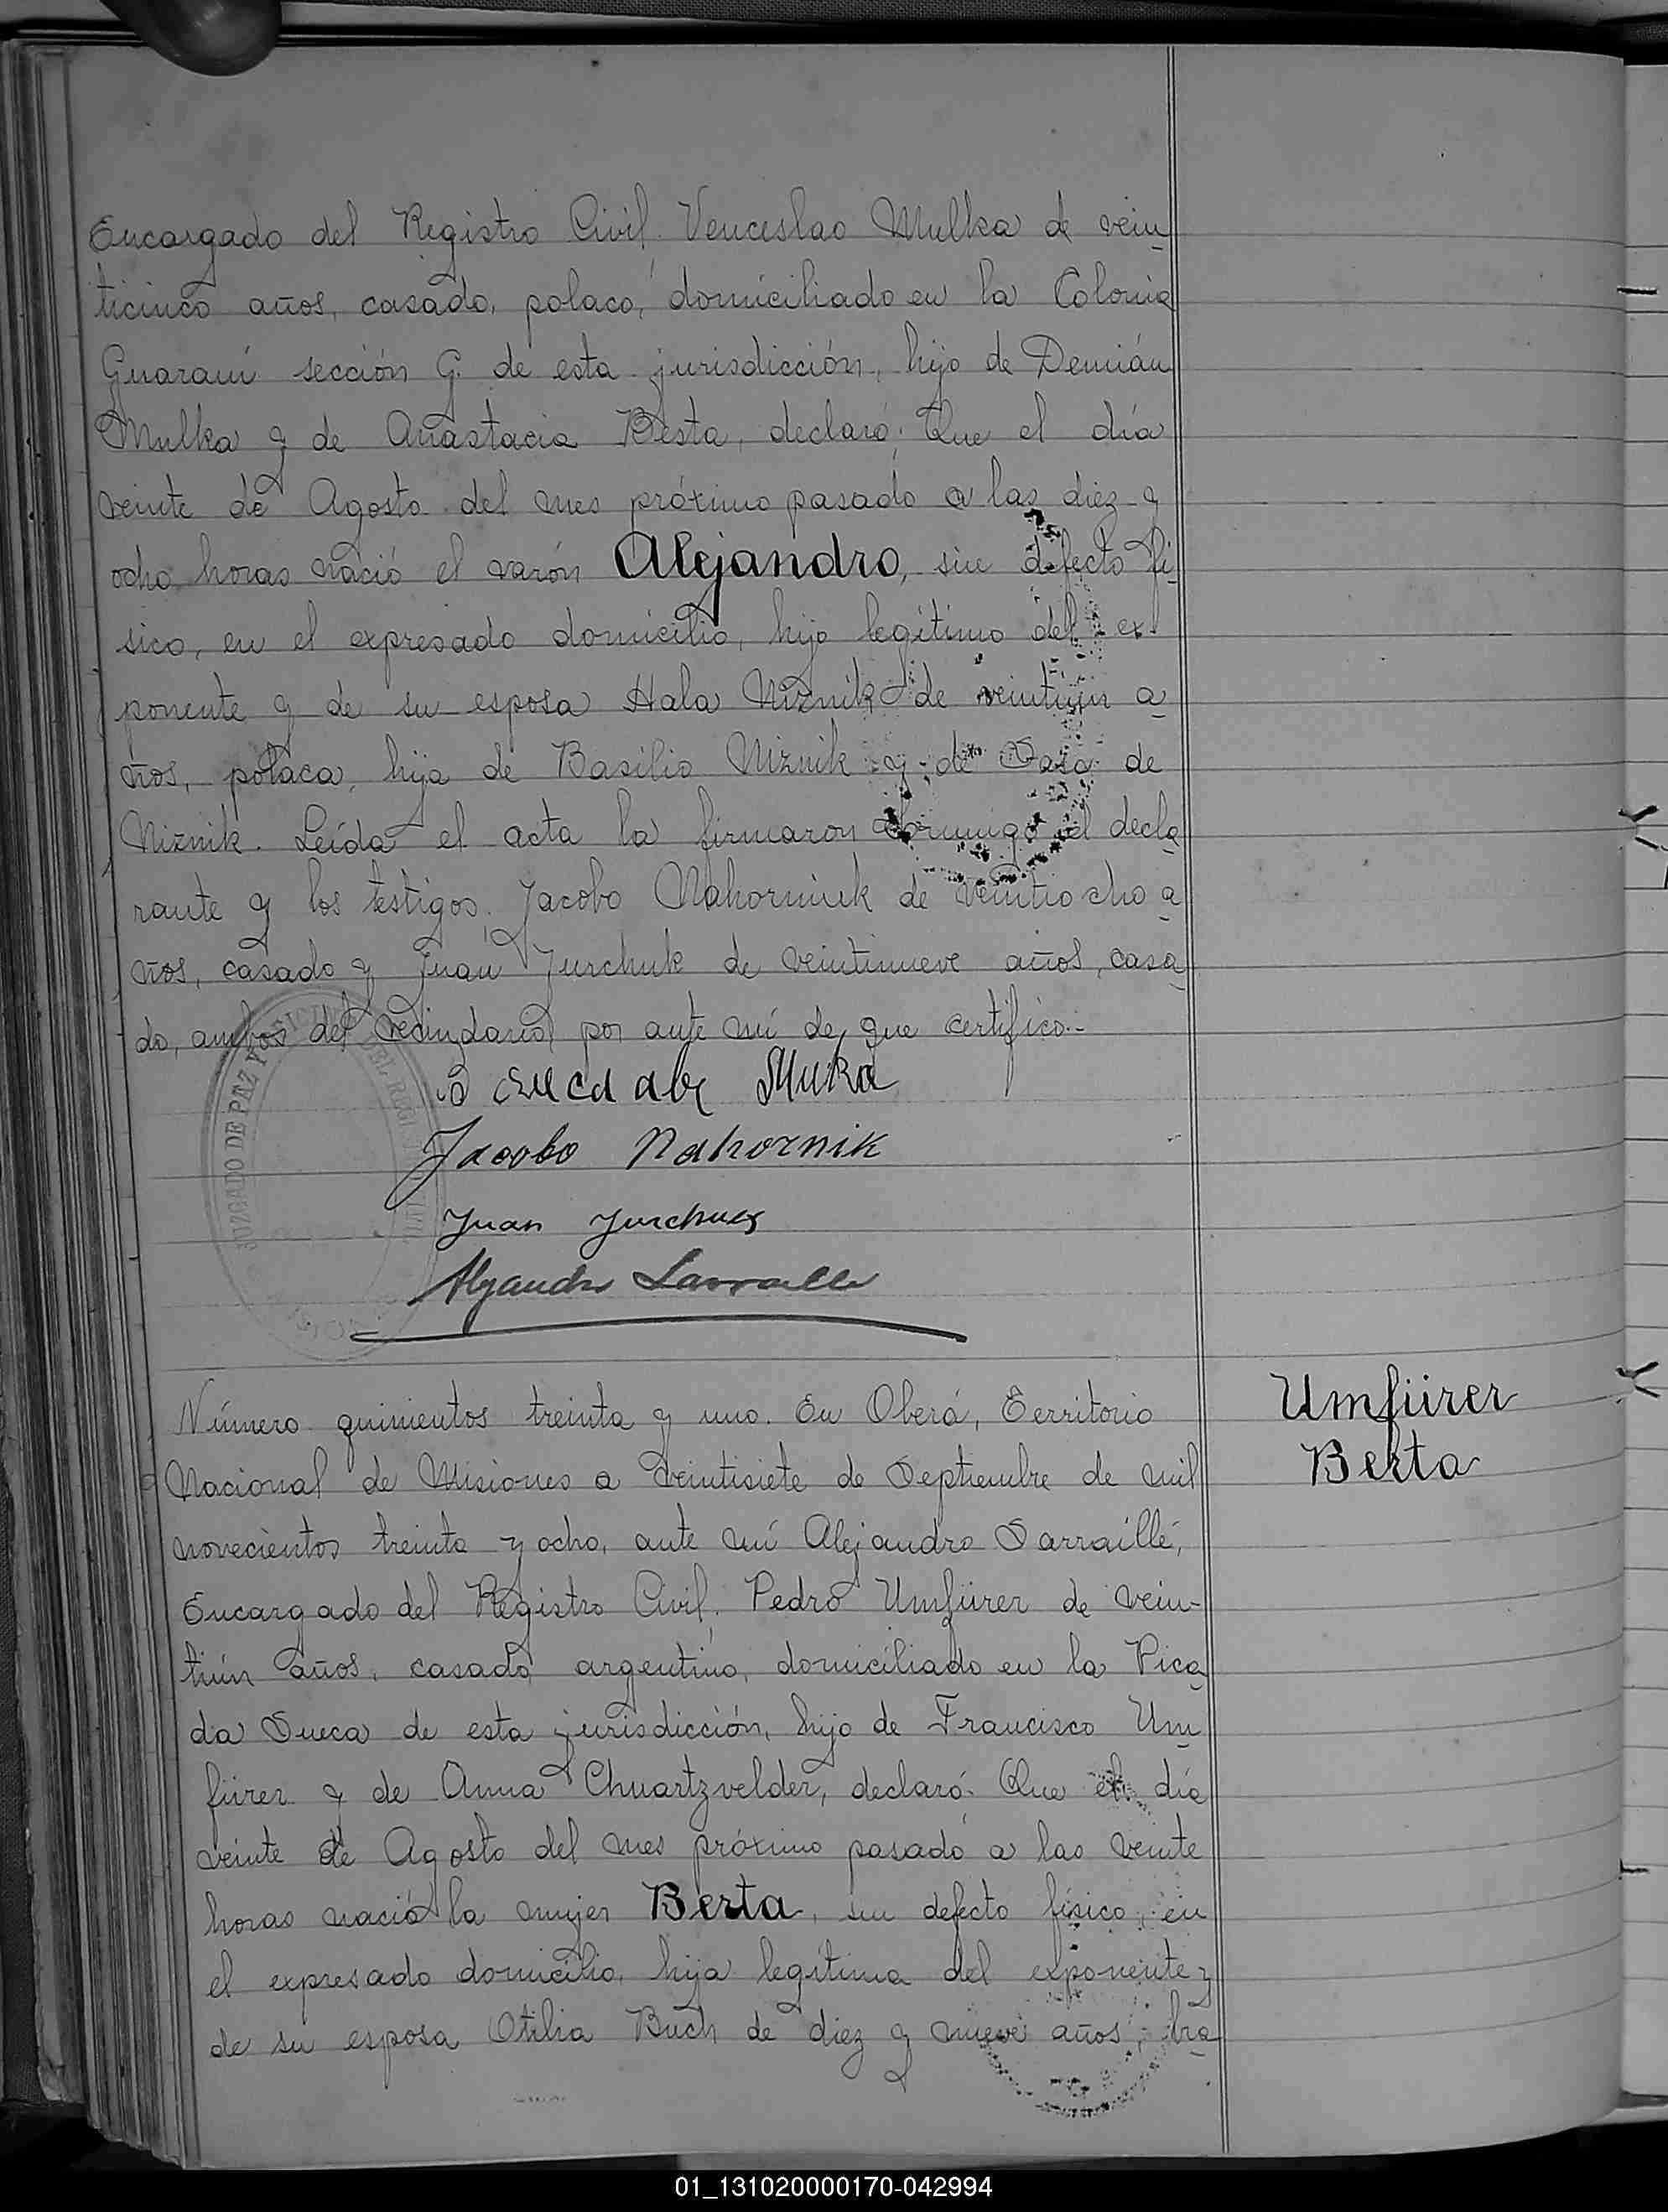 Encargado del Registro Civil. Venceslao Mulka de vein
ticinco años, casado, polaco, domiciliado en la Colonia
Guaraní sección G. de esta jurisdicción, hijo de Demián
Mulka y de Anastacia Besta, declaró: Que el día
veinte de Agosto del mes próximo pasado a las diez y
ocho horas nació el varón Alejandro, sin defecto fí
sico, en el expresado domicilio, hijo legítimo del ex-
ponente y de su esposa Hala Niznik de veintiún a
ños, polaca, hija de Basilio Niznik y de de
Niznik. Leída el acta la firmaron conmigo el decla
rante y los testigos. Jacobo Nahorniuk de veintiocho a
ños, casado y Juan Jurchuk de veintinueve años, casa
do, ambos del vecindario por ante mí de que certifico.-
Muka
Jacobo Nahornik
Juan Jurchuk
Alejandro Sarraille
JUZGADO DE PAZ Y DEL
Número quinientos treinta y uno. En Oberá, Territorio
Nacional de Misiones a veintisiete de Septiembre de mil
novecientos treinta y ocho, ante mí Alejandro Sarraillé,
Encargado del Registro Civil. Pedro Umfürer de vein-
tiún años, casado, argentino, domiciliado en la Pica
da Sueca de esta jurisdicción, hijo de Francisco Um
fürer y de Anna Chuartzvelder, declaró: Que el día
veinte de Agosto del mes próximo pasado a las veinte
horas nació la mujer Berta, sin defecto físico, en
el expresado domicilio, hija legítima del exponente y
de su esposa Otilia Buch de diez y nueve años, bra
Umfürer
Berta
01_131020000170-042994